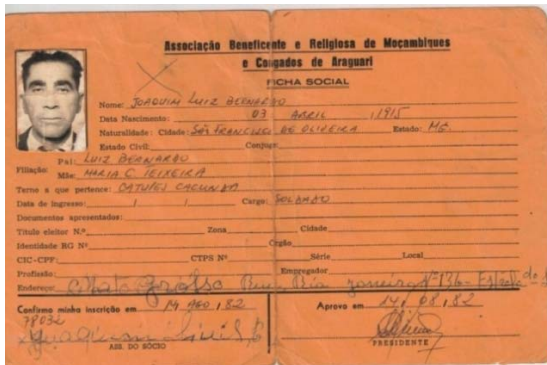 Associação Beneficente e Religiosa de Moçambiques
e Congados de Araguari
FICHA SOCIAL
Nome: JOAQUIM LUIZ BERNARDO
Data Nascimento: 03 ABRIL , 1915
Naturalidade: Cidade: SÃO FRANCISCO DE OLIVEIRA Estado: MG.
Estado Civil: Conjuge
Filiação: Pai: LUIZ BERNARDO
Mãe: MARIA C. TEIXEIRA
Terno a que pertence: CATUPÉS CACUNDA
Data de ingresso: / / Cargo: SOLDADO
Documentos apresentados:
Título eleitor N.º Zona Cidade
Identidade RG Nº Órgão
CIC-CPF: CTPS Nº Série Local
Profissão: Empregador
Endereço: Mato Grosso Rio Janeiro Nº 136 - Estrada do
Confirmo minha inscrição em 14 AGO , 82 Aprovo em 14 , 08 , 82
78032
Joaquim Luis B
ASS. DO SÓCIO PRESIDENTE